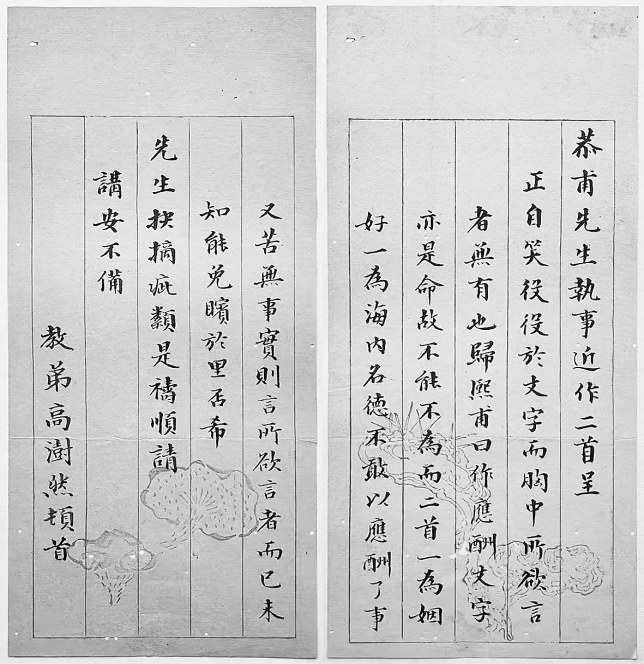 恭甫先生執事近作二首呈
正自笑役役於文字而胸中所欲言
者無有也歸熙甫曰作應酬文字
亦是命故不能不為而二首一為姻
好一為海內名德不敢以應酬了事
又苦無事實則言所欲言者而已未
知能免矉於里否希
先生抉摘疵纇是禱順請
講安不備
教弟高澍然頓首